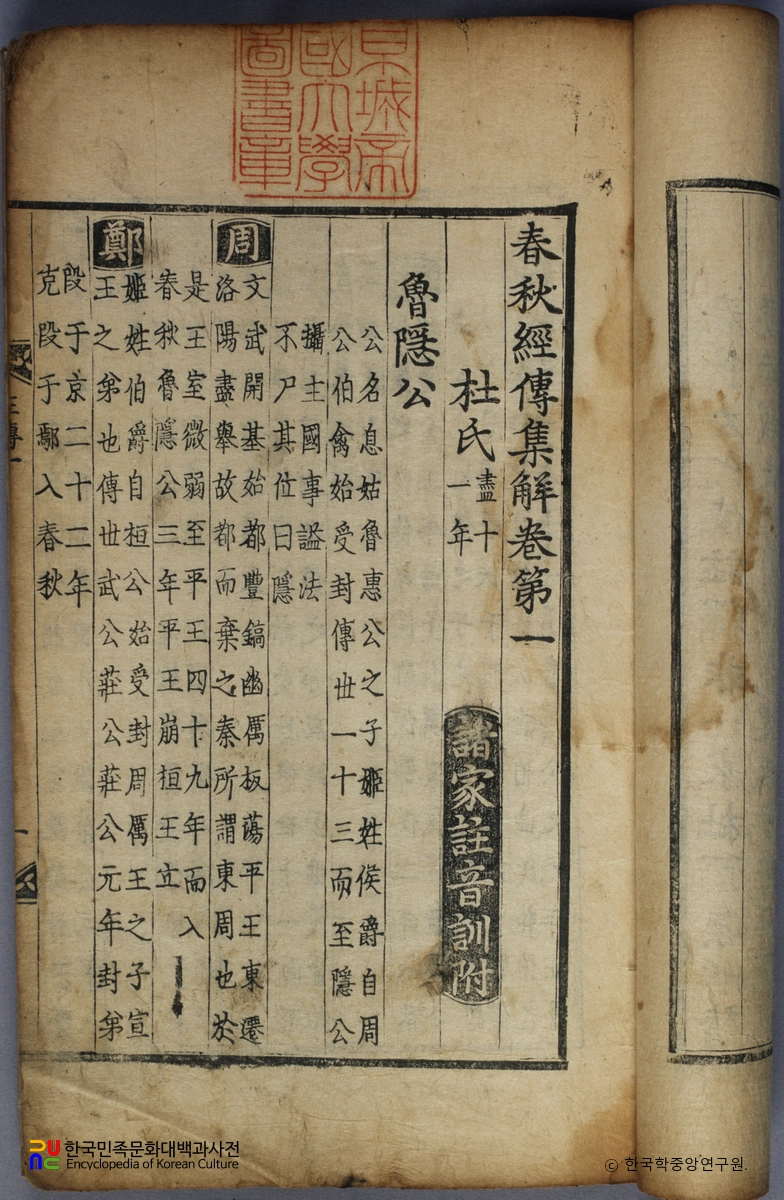 京城帝
國大學
圖書章
春秋經傳集解卷第一
杜氏
盡十
一年
諸家註音訓附
魯隱公
公名息姑魯惠公之子姬姓侯爵自周
公伯禽始受封傳世一十三而至隱公
攝主國事謚法
不尸其位曰隱
周
文武開基始都豐鎬幽厲板蕩平王東遷
洛陽盡舉故都而棄之秦所謂東周也於
是王室微弱至平王四十九年而入
春秋魯隱公三年平王崩桓王立
鄭
姬姓伯爵自桓公始受封周厲王之子宣
王之弟也傳世武公莊公莊公元年封弟
段于京二十二年
克段于鄢入春秋
한국민족문화대백과사전
Encyclopedia of Korean Culture
© 한국학중앙연구원.